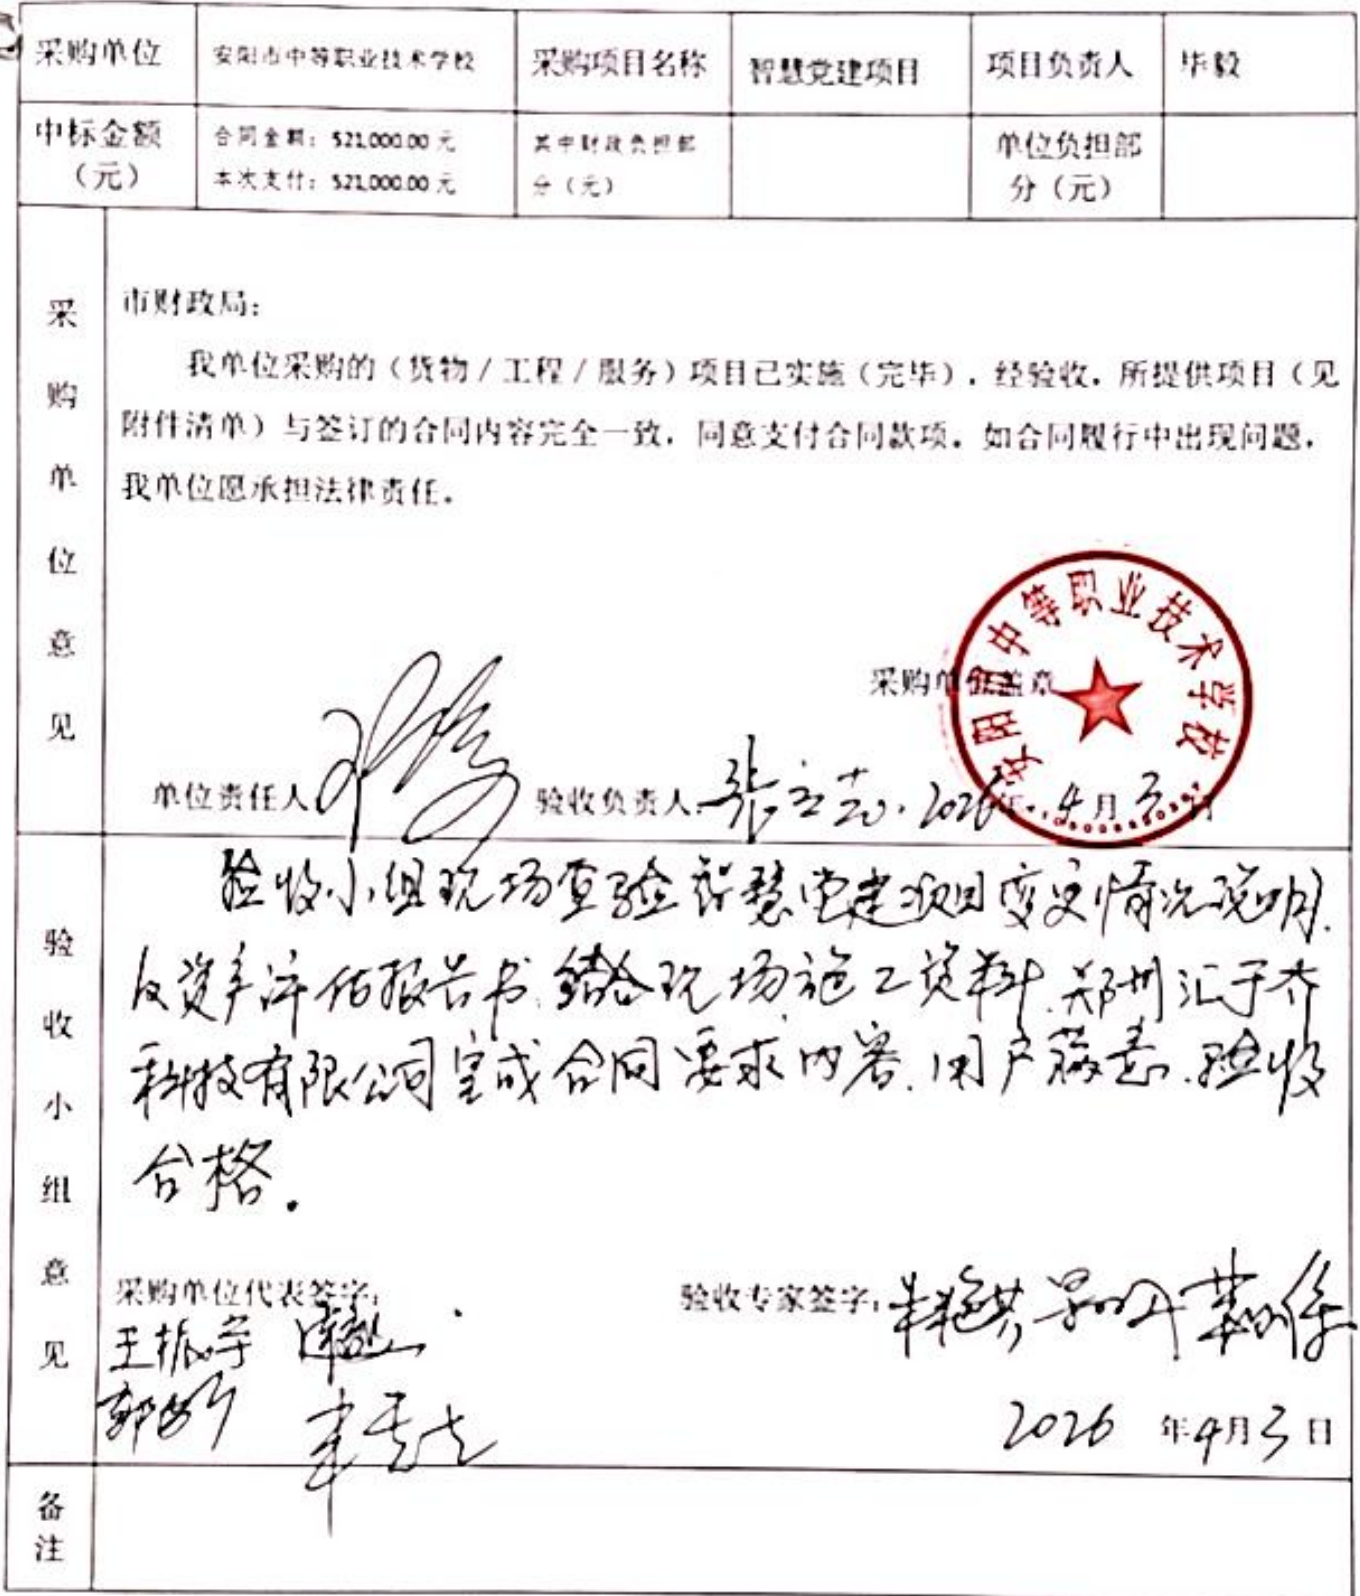 采购单位 安阳市中等职业技术学校 采购项目名称 智慧党建项目 项目负责人 毕毅
中标金额（元） 合同金额：521,000.00 元 其中财政负担部分（元） 单位负担部分（元）
本次支付：521,000.00 元
采购单位意见
市财政局：
我单位采购的（货物/工程/服务）项目已实施（完毕），经验收，所提供项目（见
附件清单）与签订的合同内容完全一致，同意支付合同款项。如合同履行中出现问题，
我单位愿承担法律责任。
采购单位盖章
安阳市中等职业技术学校
单位责任人 验收负责人：张立志 2026年4月3日
验收小组意见
验收小组现场查验智慧党建项目变更情况说明
及资产评估报告书，结合现场施工资料，郑州汇于乔
科技有限公司完成合同要求内容，用户满意，验收
合格。
采购单位代表签字： 验收专家签字：
王振宇
2026 年4月3日
备注